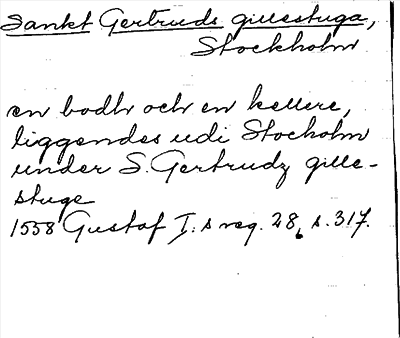 Sankt Gertruds gillestuga,
Stockholm
en bodh och en kellere,
liggendes udi Stocholm
under S. Gertrudz gille-
stuge
1558 Gustaf I.s reg. 28, s. 317.